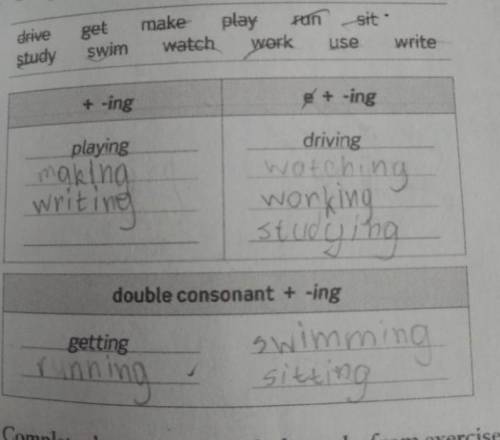 drive get make play run sit
study swim watch work use write
+ -ing
e + -ing
playing driving
making watching
writing working
studying
double consonant + -ing
getting swimming
running sitting